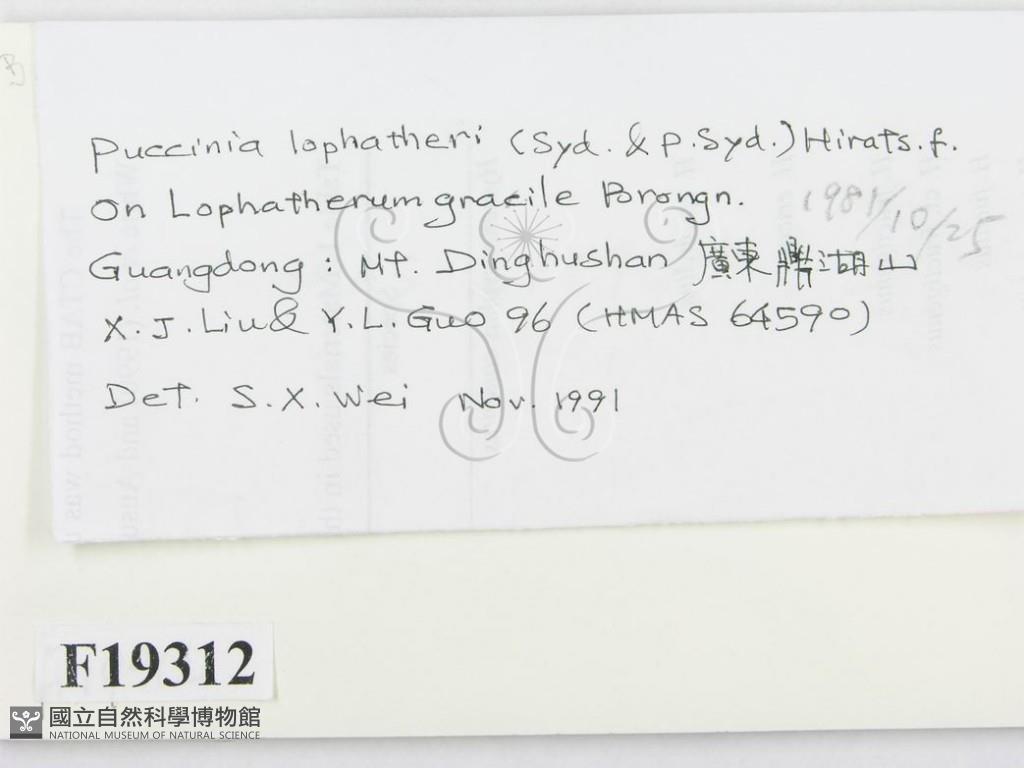 Puccinia lophatheri (Syd. & P. Syd.) Hirats. f.
on Lophatherum gracile Brongn.
1981/10/25
Guangdong : Mt. Dinghushan 廣東 湖山
X. J. Liu & Y. L. Guo 96 (HMAS 64590)
Det. S. X. Wei Nov. 1991
F19312
國立自然科學博物館
NATIONAL MUSEUM OF NATURAL SCIENCE